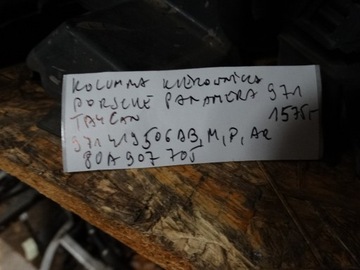 KOLUMNA KIEROWNICZA
PORSCHE PANAMERA 971
TAYCAN 1575,-
971419506AB, M, P, AQ
80A907705